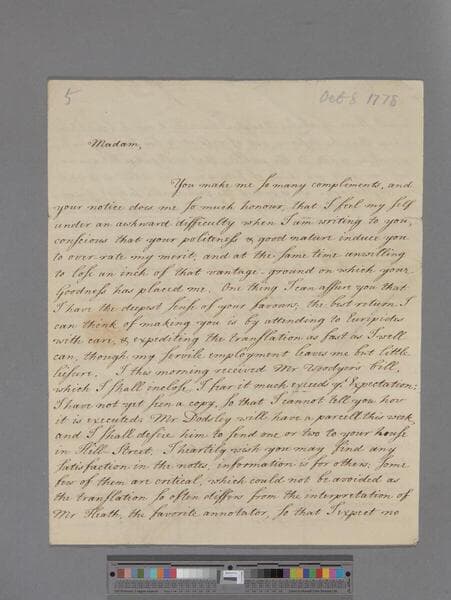 5
Oct 8 1778
Madam,
You make me so many compliments, and
your notice does me so much honour, that I feel my self
under an awkward difficulty when I am writing to you,
conscious that your politeness & good nature induce you
to over rate my merit, and at the same time unwilling
to lose an inch of that vantage-ground on which your
Goodness has placed me. One thing I can assure you that
I have the deepest sense of your favours; the best return I
can think of making you is by attending to Euripides
with care, & expediting the translation as fast as I well
can, though my servile employment leaves me but little
leisure. I this morning received Mr Woodyers bill,
which I shall inclose. I fear it much exceeds yr Expectation:
I have not yet seen a copy, so that I cannot tell you how
it is executed; Mr Dodsley will have a parcell this week,
and I shall desire him to send one or two to your house
in Hill Street. I heartily wish you may find any
satisfaction in the notes, information is for others; some
few of them are critical, which could not be avoided as
the translation so often differs from the interpretation of
Mr Heath, the favorite annotator, so that I expect no